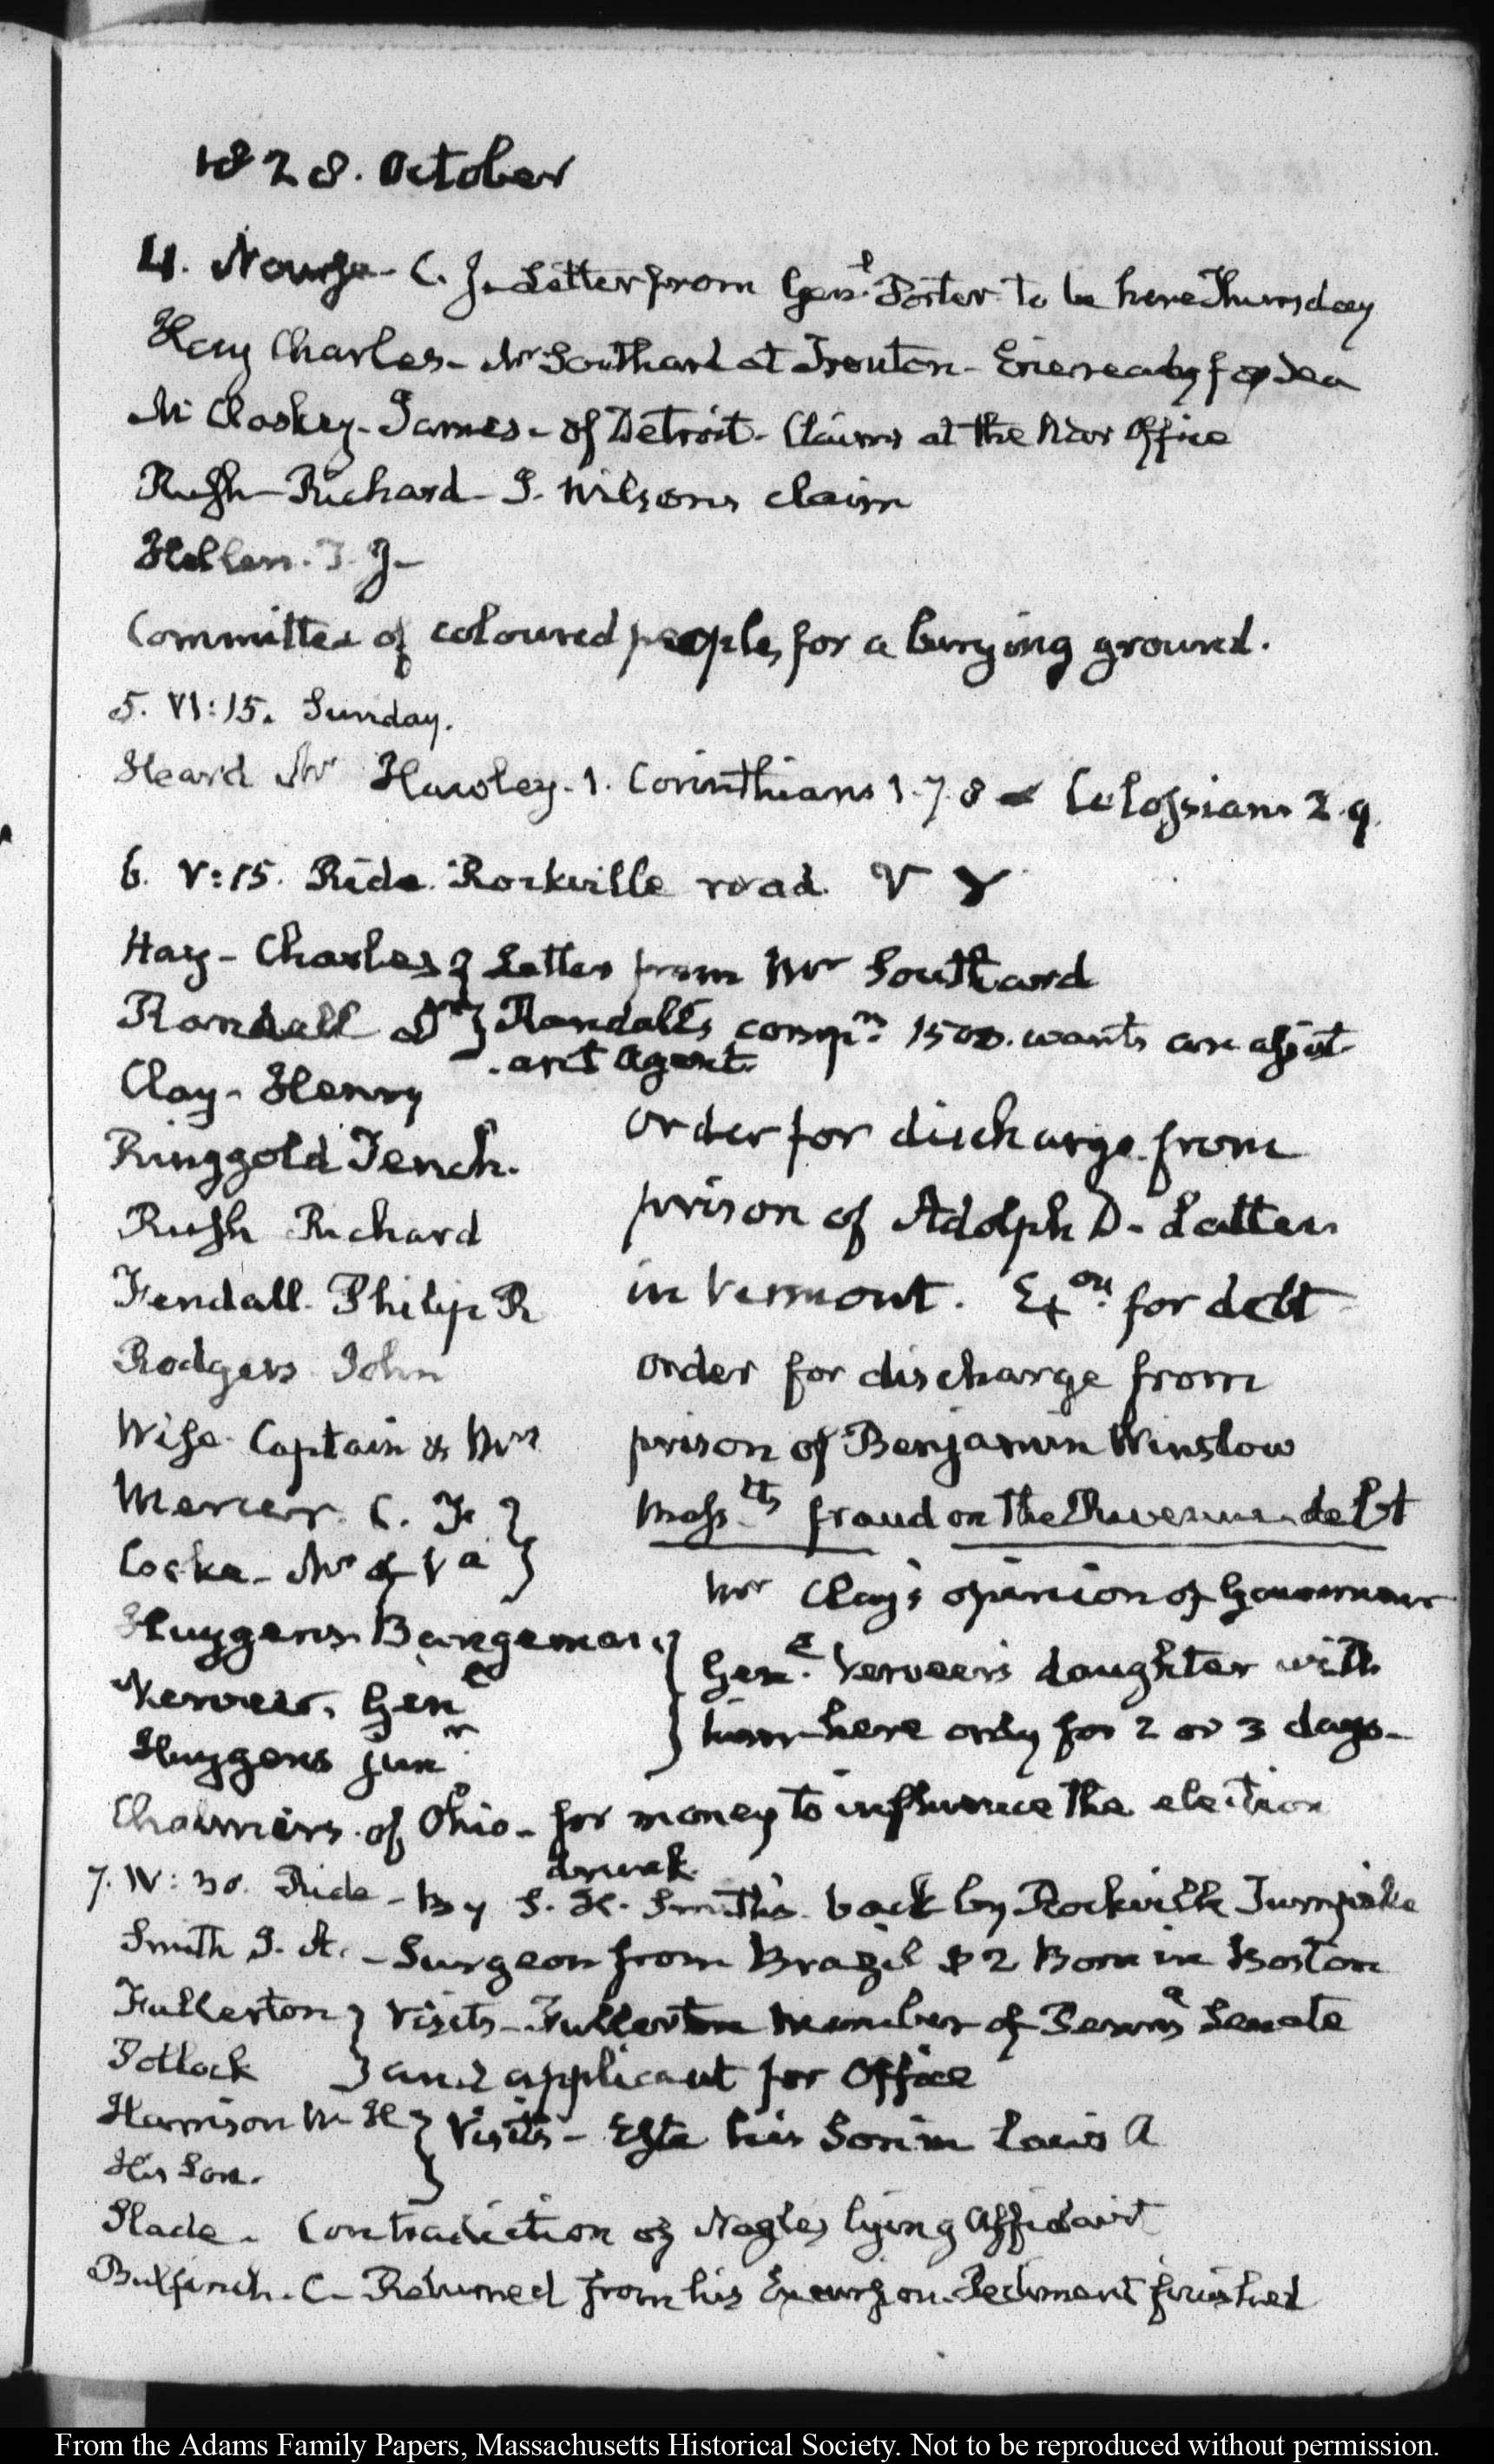 1828. October
4. Nourse - C. J. - Letter from Genl. Porter to be here Thursday
Hay Charles - Mr Southard at Trenton - Erie ready for Sea
McCloskey - James - of Detroit - Claims at the War Office
Rush - Richard - J. Wilsons claim
Hellen. T. J -
Committee of coloured people, for a burying ground.
5. VI:15. Sunday.
Heard Mr Hawley - 1. Corinthians 1. 7. 8 Colossians 2. 9.
6. V:15. Ride. Rockville road. V
Hay - Charles } Letter from Mr Southard
Randall Dr } Randall's compn. 1500. wants an assist-
ant Agent.
Clay - Henry
Ringgold Tench.
Rush Richard
Fendall. Philip R
Rodgers John
Wise. Captain & Mrs
Mercer. C. F. }
Cocke - Mr of Va }
order for discharge from
prison of Adolph D. Latten
in Vermont. Exon. for debt
order for discharge from
prison of Benjamin Winslow
Masstts fraud on the Revenue debt
Mr Clay's opinion of
Huygens Bangeman }
Verveer. Genl }
Huygens junr. }
Genl. Verveer's daughter with
him - here only for 2 or 3 days -
Chalmers. of Ohio - for money to influence the election
7. IV:30. Ride - By S. H. Smith's back by Rockville Turnpike
drunk
Smith J. A. - Surgeon from Brazil $2 Born in Boston
Fullerton } Visits - Fullerton Member of Penna Senate
Pollock } and applicant for Office
Harrison W. H } Visits - Este his Son in Law A
His Son. }
Slade - Contradiction of Nagles lying Affidavit
Bulfinch. C - Returned from his Excursion. Pediment finished
From the Adams Family Papers, Massachusetts Historical Society. Not to be reproduced without permission.